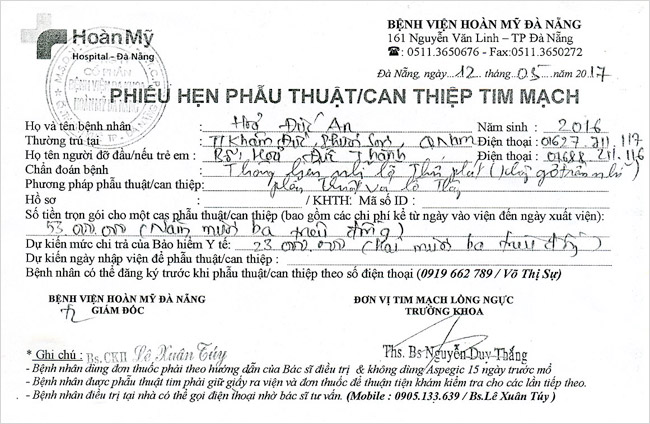 Hoàn Mỹ
Hospital - Đà Nẵng
BỆNH VIỆN HOÀN MỸ ĐÀ NẴNG
161 Nguyễn Văn Linh – TP Đà Nẵng
☎: 0511.3650676 - Fax:0511.3650272
Đà Nẵng, ngày 12 tháng 05 năm 2017
PHIẾU HẸN PHẪU THUẬT/CAN THIỆP TIM MẠCH
Họ và tên bệnh nhân : Hồ Đức An Năm sinh : 2016
Thường trú tại : TT Khâm Đức, Phước Sơn, QNam Điện thoại : 01627.211.117
Họ tên người đỡ đầu/nếu trẻ em : Bố, Hồ Đức Thành Điện thoại : 01688.211.116
Chẩn đoán bệnh : Thông liên nhĩ lỗ Thứ phát
Phương pháp phẫu thuật/can thiệp: phẫu thuật vá lỗ Thông
Hồ sơ : / KHTH: Mã số ID :
Số tiền trọn gói cho một cas phẫu thuật/can thiệp (bao gồm các chi phí kể từ ngày vào viện đến ngày xuất viện):
53.000.000 (Năm mươi ba triệu đồng)
Dự kiến mức chi trả của Bảo hiểm Y tế: 23.000.000 (Hai mươi ba triệu đồng)
Dự kiến ngày nhập viện để phẫu thuật/can thiệp :
Bệnh nhân có thể đăng ký trước khi phẫu thuật/can thiệp theo số điện thoại (0919 662 789 / Võ Thị Sự)
BỆNH VIỆN HOÀN MỸ ĐÀ NẴNG
GIÁM ĐỐC
ĐƠN VỊ TIM MẠCH LỒNG NGỰC
TRƯỞNG KHOA
Bs.CKII Lê Xuân Túy
Ths. Bs Nguyễn Duy Thắng
* Ghi chú :
- Bệnh nhân dùng đơn thuốc phải theo hướng dẫn của Bác sĩ điều trị & không dùng Aspegic 15 ngày trước mổ
- Bệnh nhân được phẫu thuật tim phải giữ giấy ra viện và đơn thuốc để thuận tiện khám kiểm tra cho các lần tiếp theo.
- Bệnh nhân điều trị tại nhà có thể gọi điện thoại nhờ bác sĩ tư vấn. (Mobile : 0905.133.639 / Bs.Lê Xuân Túy )